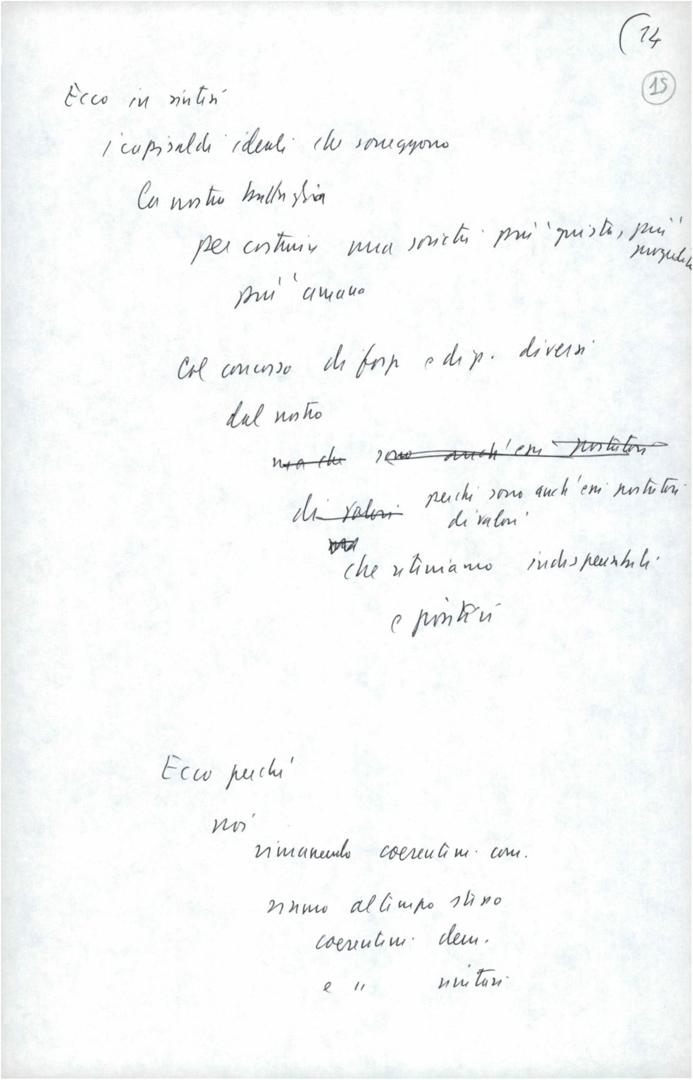 (14
15
Ecco in sintesi
i capisaldi ideali che sorreggono
la nostra battaglia
per costruire una società più giusta, più
più umana
col concorso di forze e di p. diversi
dal nostro
ma che sono anch'essi portatori
di valori perché sono anch'essi portatori
di valori
ma
che riteniamo indispensabili
e positivi
Ecco perché
noi
rimanendo coerentem. com.
siamo al tempo stesso
coerentem. dem.
e " unitari